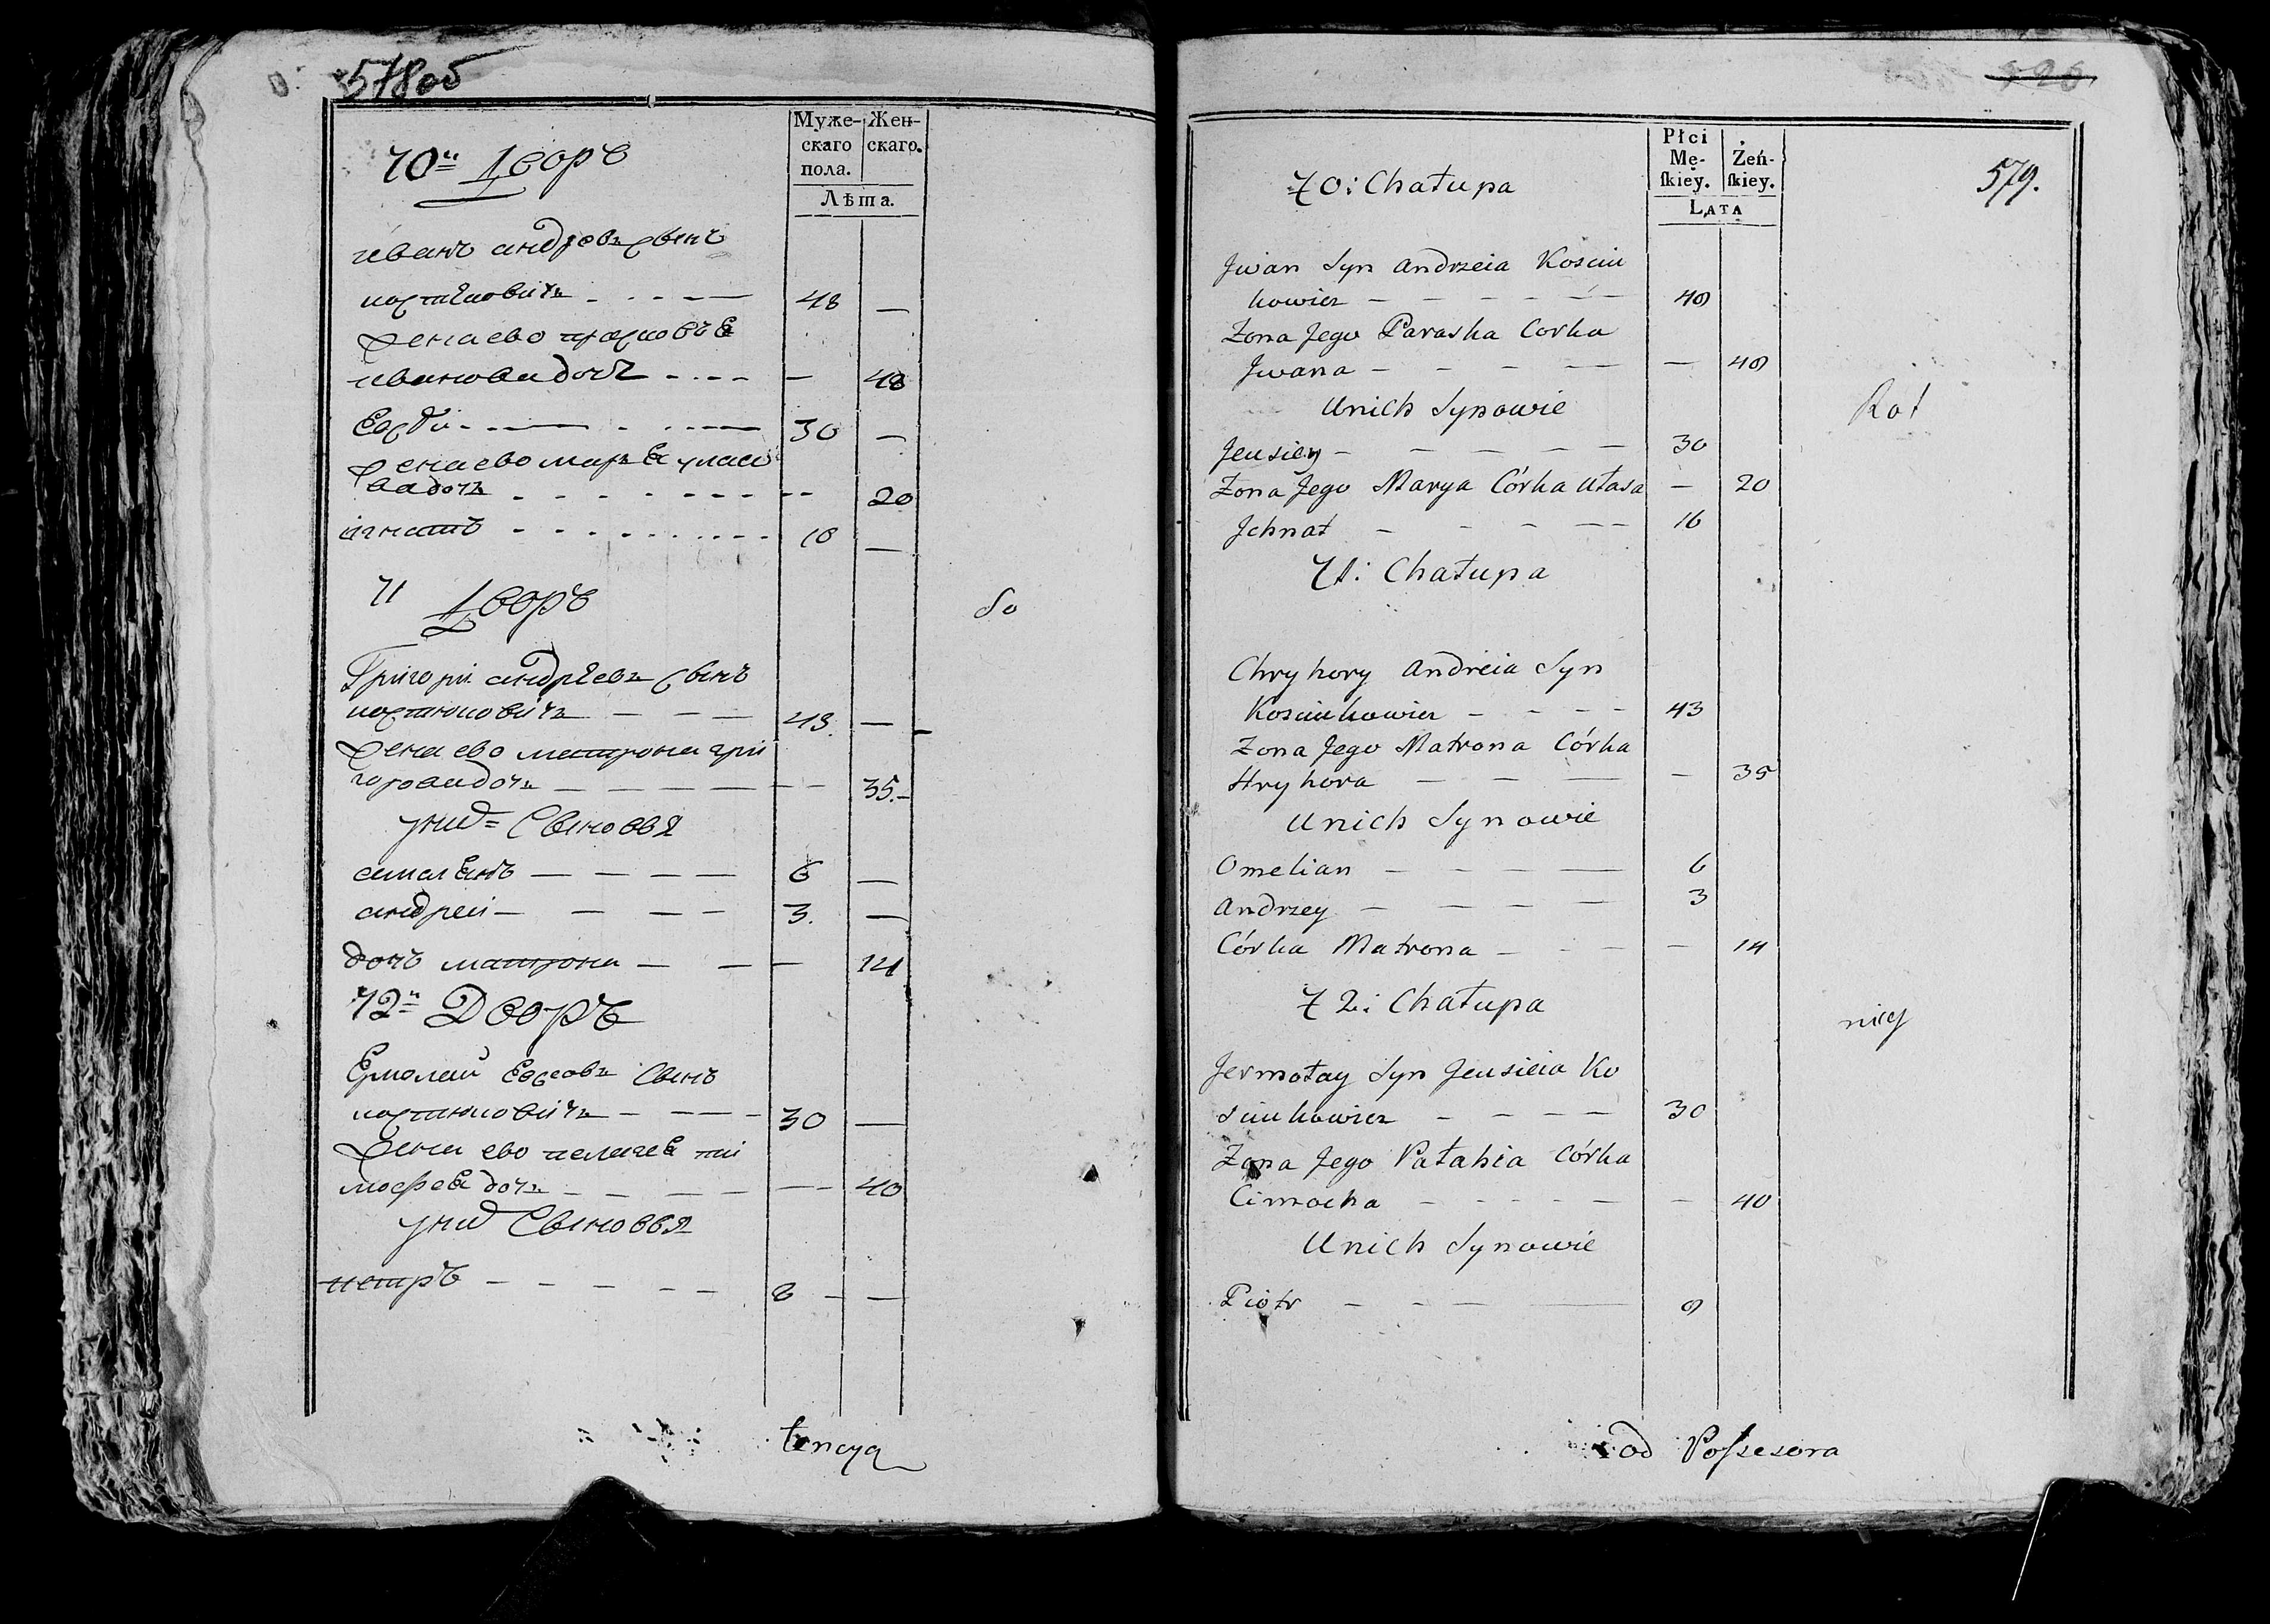 578об
Муже- Жен-
скаго скаго.
пола.
Лѣта.
70й Дворъ
иванъ андреевъ сынъ
костюковичъ - - - - 48 —
жена ево прасковья
иванова дочь - - - - — 48
Евсей - - - - 30 —
жена ево марья уласо
ва дочь - - - - - - 20
игнатъ - - - - - 18 —
71 Дворъ
So
Григорий андреевъ сынъ
костюковичъ — — — 43. —
жена ево матрона гри
горова дочь — — — — — 35.-
у них= Сыновья
емельянъ — — — — 6 —
андреи — — — — 3. —
дочь матрона — — — 14
72й Дворъ
Ермолаи Евсеевъ Сынъ
костюковичъ — — — 30 —
жена ево пелагея ти
мофея дочь — — — — — 40
у них Сыновья
петръ — — — — — 8 — —
tencya
526
579.
Płci
Mę- Żeń-
skiey. skiey.
LATA
70: Chałupa
Jwan Syn Andrzeia Kosciu
kowicz — — — — — 48
Zona Jego Paraska Corka
Jwana — — — — — — 48
Unich Synowie
Rot
Jeusiey — — — — — 30
Zona Jego Marya Córka Ułasa — 20
Jchnat — — — — — 16
71: Chałupa
Chryhory Andreia Syn
Kosciukowicz — — — — 43
Zona Jego Matrona Córka
Hryhora — — — — 35
Unich Synowie
Omelian — — — — 6
Andrzey — — — — 3
Córka Matrona — — — — 14
72: Chałupa
nicy
Jermołay Syn Jeusieia Ko
sciukowicz — — — — 30
Zona Jego Pałahia Córka
Cimocha — — — — — — 40
Unich Synowie
Piotr — — — — 8
od Possesora